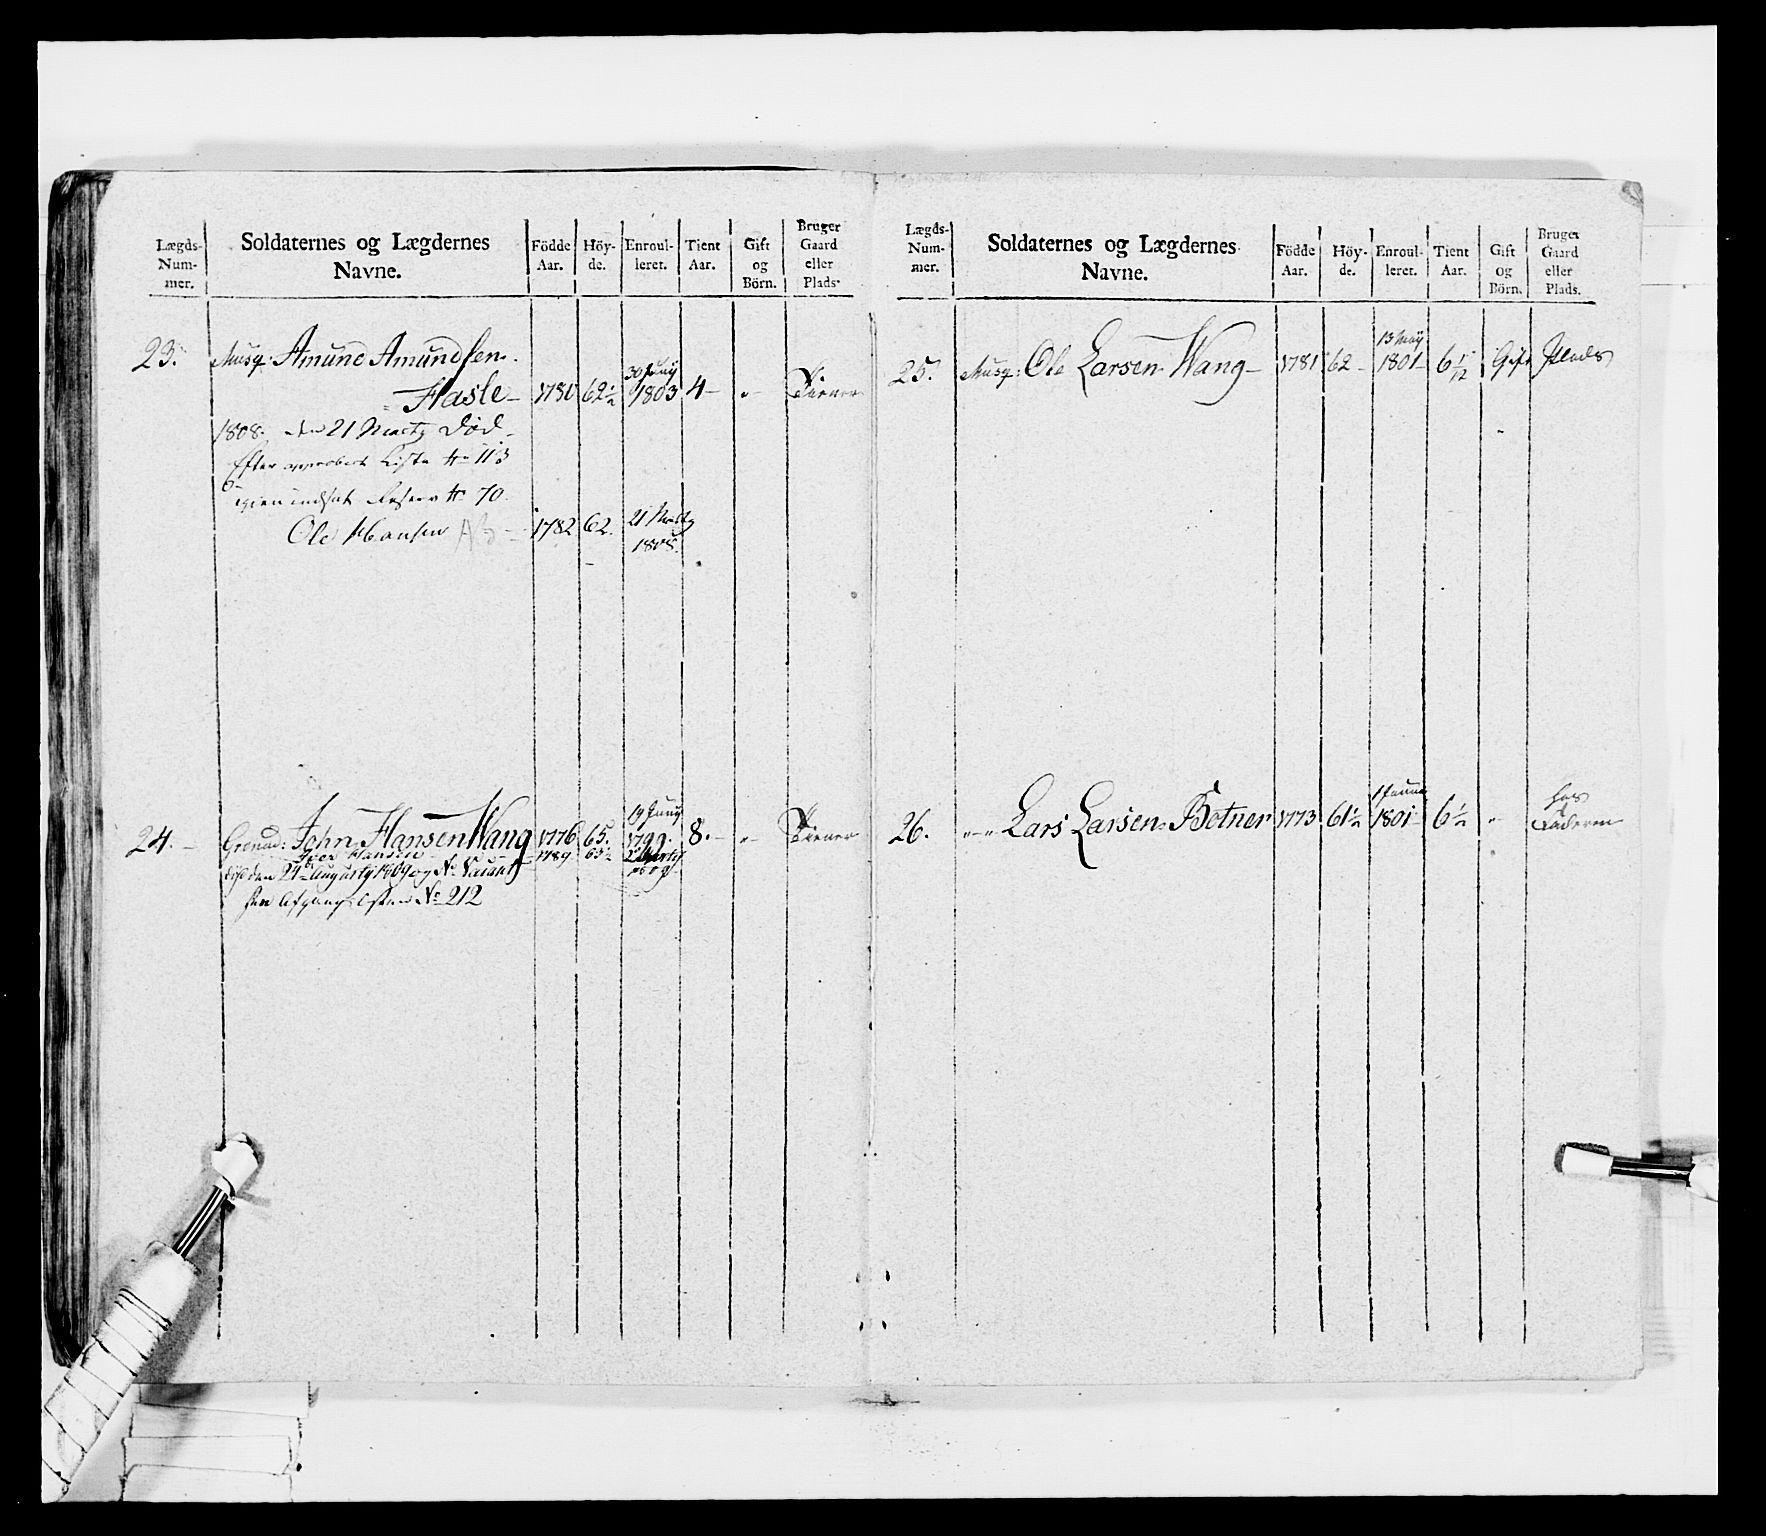 Lægds- Num- mer.
Soldaternes og Lægdernes Navne.
Födde Aar.
Höy- de.
Enroul- leret.
Tient Aar.
Gift og Börn.
Bruger Gaard eller Plads.
23. Musq: Amund Amundsen
Hasle 1780 62½ 30 Juny 1803 4 - Tiener
1808 den 21 Martz død
Efter approbert Liste No 113
igien indsat Reserv No 70
Ole Hansen 1782 62. 21 Martz 1808.
24. Grenad: John Hansen Wang 1776 65. 19 Juny 1799 8. - Tiener
Hansen 1789 63½
død den 24 Augusty 1809 og No Vacant
No 212
Lægds- Num- mer.
Soldaternes og Lægdernes Navne.
Födde Aar.
Höy- de.
Enroul- leret.
Tient Aar.
Gift og Börn.
Bruger Gaard eller Plads.
25. Musq: Ole Larsen Wang 1781 62 13 May 1801 6 1/12 Gift Plads
26. Lars Larsen Botner 1773 61½ 1801 6½ - hos Faderen